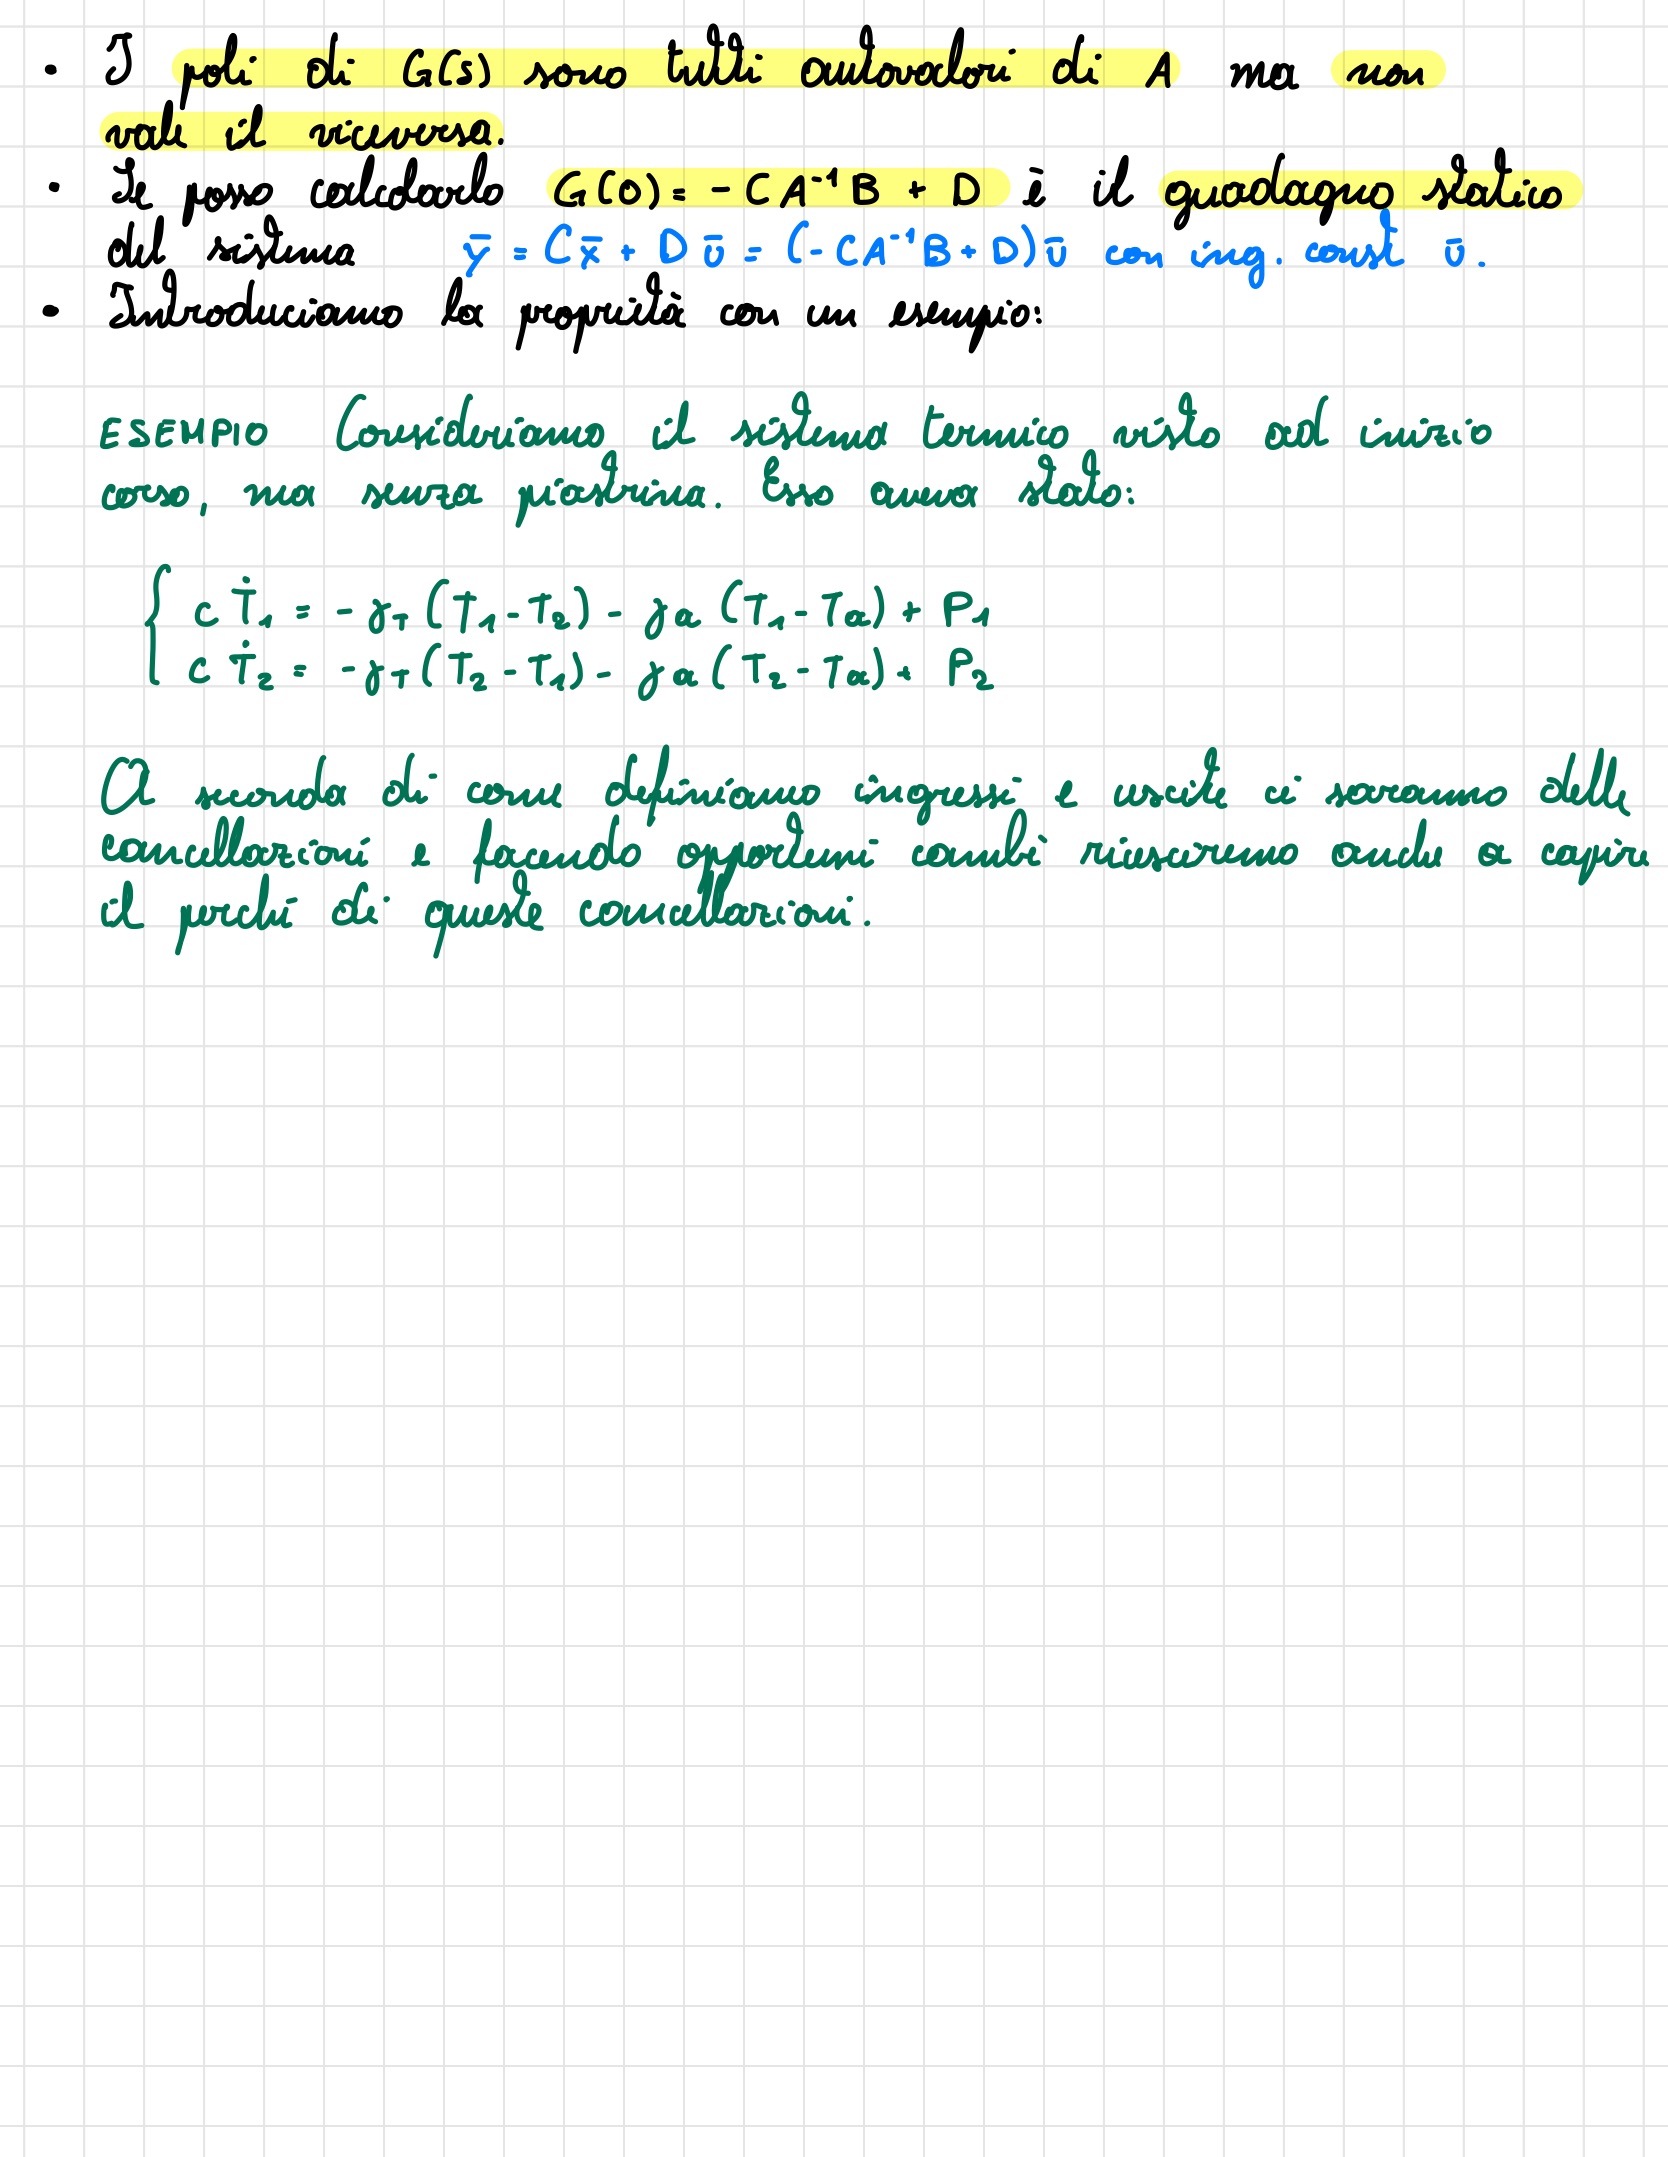 • I poli di G(s) sono tutti autovalori di A ma non
vale il viceversa.
• Se posso calcolarlo G(0) = - C A⁻¹ B + D è il guadagno statico
del sistema ȳ = C x̄ + D ū = (- C A⁻¹ B + D) ū con ing. const ū.
• Introduciamo la proprietà con un esempio:
ESEMPIO Consideriamo il sistema termico visto ad inizio
corso, ma senza piastrina. Esso aveva stato:
{ c Ṫ₁ = - γ_T (T₁ - T₂) - γa (T₁ - Ta) + P₁
c Ṫ₂ = - γ_T (T₂ - T₁) - γa (T₂ - Ta) + P₂
A seconda di come definiamo ingressi e uscite ci saranno delle
cancellazioni e facendo opportuni cambi riusciremo anche a capire
il perché di queste cancellazioni.